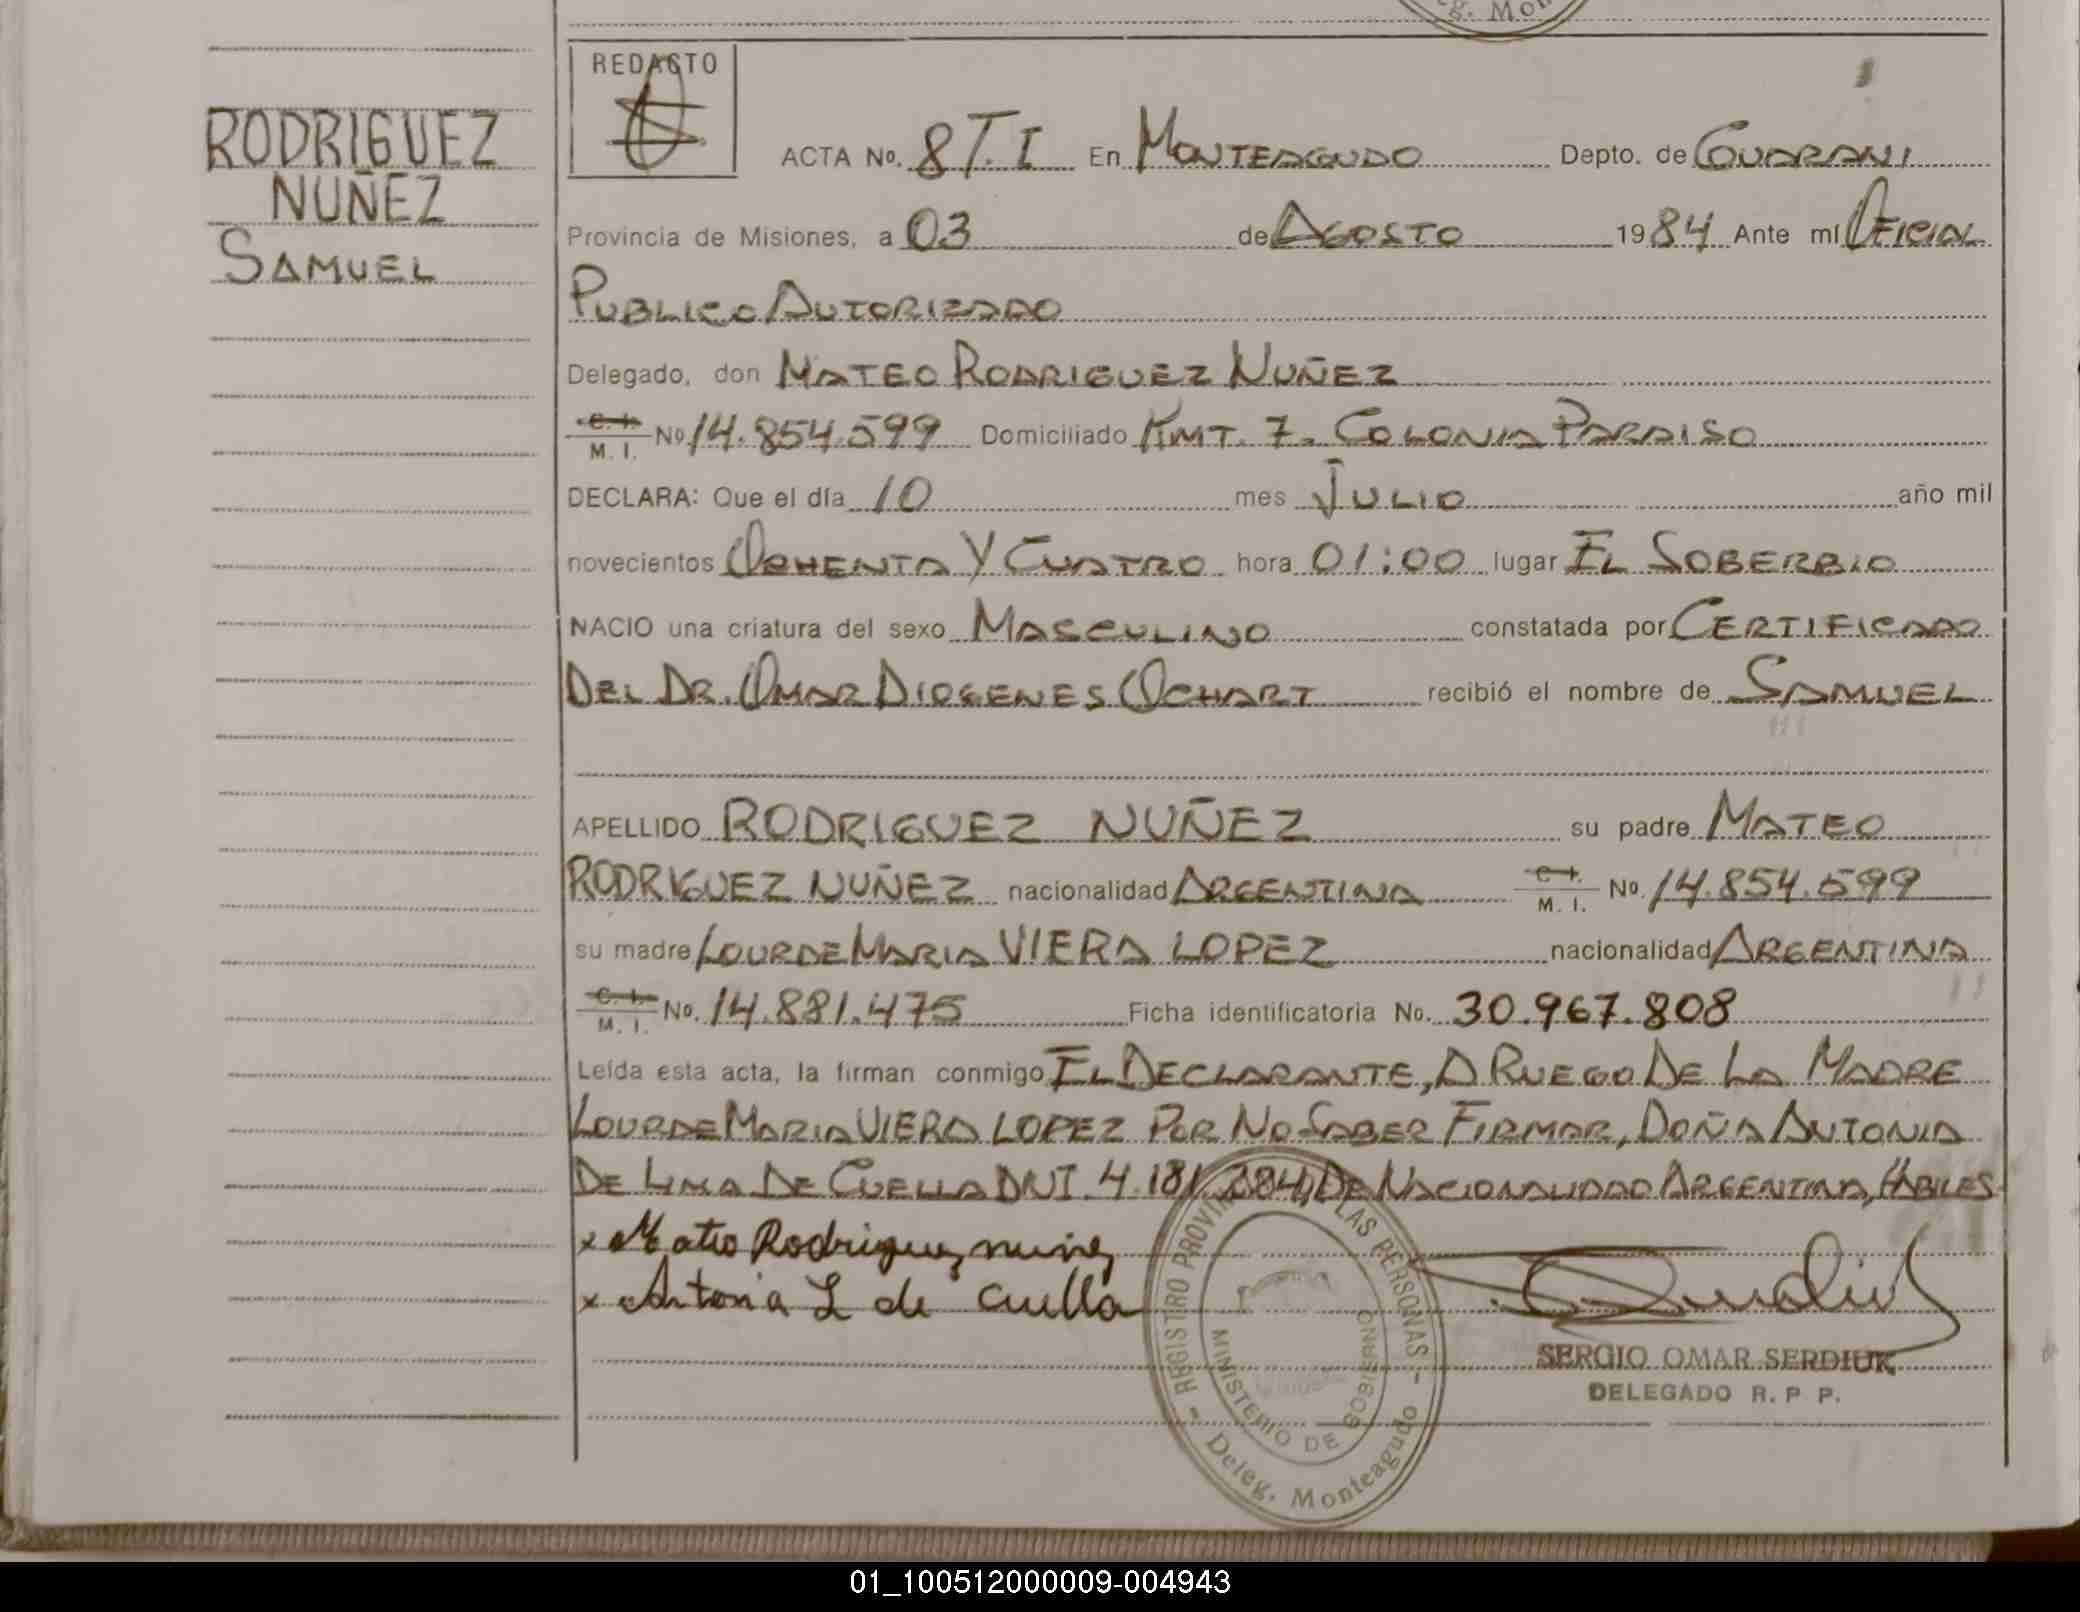 eg. Mon
REDACTO
RODRIGUEZ
NUÑEZ
SAMUEL
ACTA No. 8 T.I En MONTEAGUDO Depto. de GUARANI
Provincia de Misiones, a 03 de AGOSTO 1984 Ante mí OFICIAL
PUBLICO AUTORIZADO
Delegado, don MATEO RODRIGUEZ NUÑEZ
C. I.
M. I. No 14.854.599 Domiciliado KMT. 7. COLONIA PARAISO
DECLARA: Que el día 10 mes JULIO año mil
novecientos OCHENTA Y CUATRO hora 01:00 lugar EL SOBERBIO
NACIO una criatura del sexo MASCULINO constatada por CERTIFICADO
DEL DR. OMAR DIOGENES OCHART recibió el nombre de SAMUEL
APELLIDO RODRIGUEZ NUÑEZ su padre MATEO
RODRIGUEZ NUÑEZ nacionalidad ARGENTINA C. I. M. I. No. 14.854.599
su madre LOURDE MARIA VIERA LOPEZ nacionalidad ARGENTINA
C. I. M. I. No. 14.881.475 Ficha identificatoria No. 30.967.808
Leída esta acta, la firman conmigo EL DECLARANTE, A RUEGO DE LA MADRE
LOURDE MARIA VIERA LOPEZ POR NO SABER FIRMAR, DOÑA ANTONIA
DE LIMA DE CUELLA DNI 4.181.284, DE NACIONALIDAD ARGENTINA, HABILES
x Mateo Rodriguez nuñez
x Antonia L de Cuella
REGISTRO PROVIN LAS PERSONAS
MINISTERIO DE GOBIERNO
Deleg. Monteagudo
SERGIO OMAR SERDIUK
DELEGADO R. P P.
01_100512000009-004943